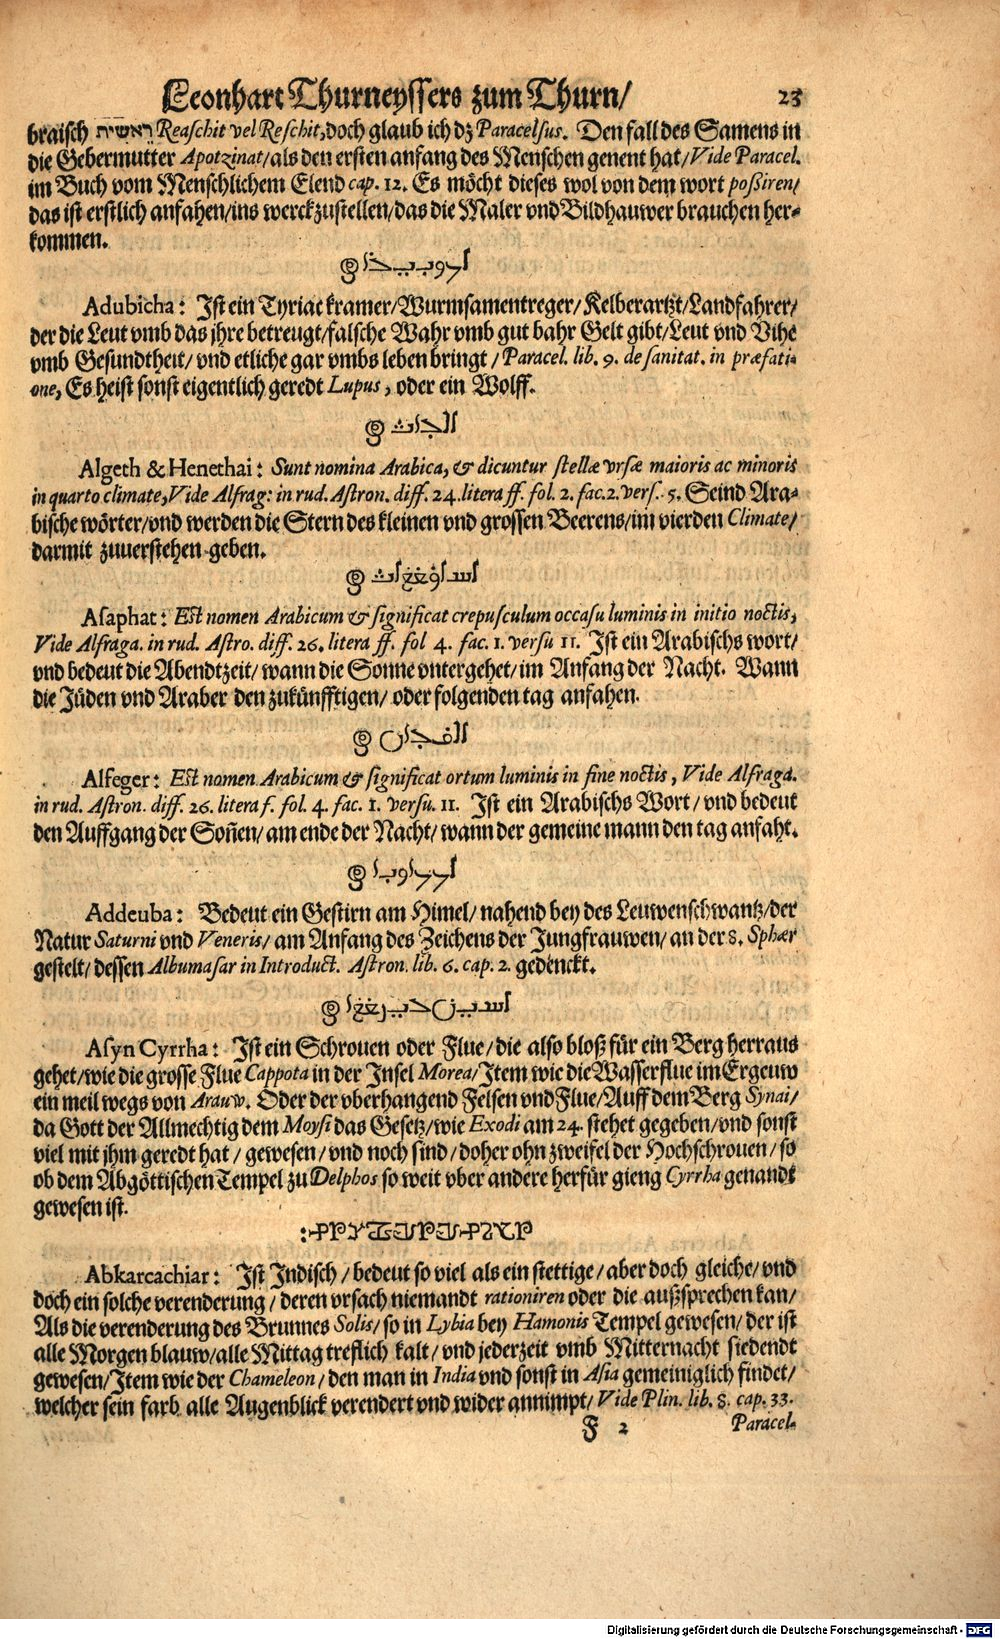 Leonhart Thurneyssers zum Thurn/ 23
braisch ראשית Reaschit vel Reschit, doch glaub ich dz Paracelsus. Den fall des Samens in
die Gebermutter Apotzinat/ als den ersten anfang des Menschen genent hat/ Vide Paracel.
im Buch vom Menschlichem Elend cap. 12. Es möcht dieses wol von dem wort poßiren/
das ist erstlich anfahen/ ins werck zustellen/ das die Maler vnd Bildhauwer brauchen her-
kommen.
Adubicha: Ist ein Tyriackramer/ Wurmsamentreger/ Kelberartzt/ Landfahrer/
der die Leut vmb das jhre betreugt/ falsche Wahr vmb gut bahr Gelt gibt/ Leut vnd Vihe
vmb Gesundtheit/ vnd etliche gar vmbs leben bringt/ Paracel. lib. 9. de sanitat. in præfati-
one, Es heist sonst eigentlich geredt Lupus, oder ein Wolff.
Algeth & Henethai: Sunt nomina Arabica, & dicuntur stellæ vrsæ maioris ac minoris
in quarto climate, Vide Alfrag: in rud. Astron. diff. 24. litera ff. fol. 2. fac. 2. vers. 5. Seind Ara-
bische wörter/ vnd werden die Stern des kleinen vnd grossen Beerens/ im vierden Climate/
darmit zuuerstehen geben.
Asaphat: Est nomen Arabicum & significat crepusculum occasu luminis in initio noctis,
Vide Alfraga. in rud. Astro. diff. 26. litera ff. fol 4. fac. 1. versu 11. Ist ein Arabischs wort/
vnd bedeut die Abendtzeit/ wann die Sonne vntergehet/ im Anfang der Nacht. Wann
die Jüden vnd Araber den zukünfftigen/ oder folgenden tag anfahen.
Alfeger: Est nomen Arabicum & significat ortum luminis in fine noctis, Vide Alfraga.
in rud. Astron. diff. 26. litera f. fol. 4. fac. 1. versu. 11. Ist ein Arabischs Wort/ vnd bedeut
den Auffgang der Soñen/ am ende der Nacht/ wann der gemeine mann den tag anfaht.
Addeuba: Bedeut ein Gestirn am Himel/ nahend bey des Leuwenschwantz/ der
Natur Saturni vnd Veneris/ am Anfang des Zeichens der Jungfrauwen/ an der 8. Sphær
gestelt/ dessen Albumasar in Introduct. Astron. lib. 6. cap. 2. gedenckt.
Asyn Cyrrha: Ist ein Schrouen oder Flue/ die also bloß für ein Berg herraus
gehet/ wie die grosse Flue Cappota in der Insel Morea/ Item wie die Wasserflue im Ergeuw
ein meil wegs von Arauw. Oder der vberhangend Felsen vnd Flue/ Auff dem Berg Synai/
da Gott der Allmechtig dem Moysi das Gesetz/ wie Exodi am 24. stehet gegeben/ vnd sonst
viel mit jhm geredt hat/ gewesen/ vnd noch sind/ doher ohn zweifel der Hochschrouen/ so
ob dem Abgöttischen Tempel zu Delphos so weit vber andere herfür gieng Cyrrha genandt
gewesen ist.
Abkarcachiar: Ist Indisch/ bedeut so viel als ein stettige/ aber doch gleiche/ vnd
doch ein solche verenderung/ deren vrsach niemandt rationiren oder die außsprechen kan/
Als die verenderung des Brunnes Solis/ so in Lybia bey Hamonis Tempel gewesen/ der ist
alle Morgen blauw/ alle Mittag treflich kalt/ vnd jederzeit vmb Mitternacht siedendt
gewesen/ Item wie der Chameleon/ den man in India vnd sonst in Asia gemeiniglich findet/
welcher sein farb alle Augenblick verendert vnd wider annimpt/ Vide Plin. lib. 8. cap. 33.
F 2 Paracel-
Digitalisierung gefördert durch die Deutsche Forschungsgemeinschaft - DFG